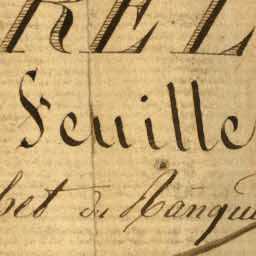 REL
Feuille
bet du Ranqu